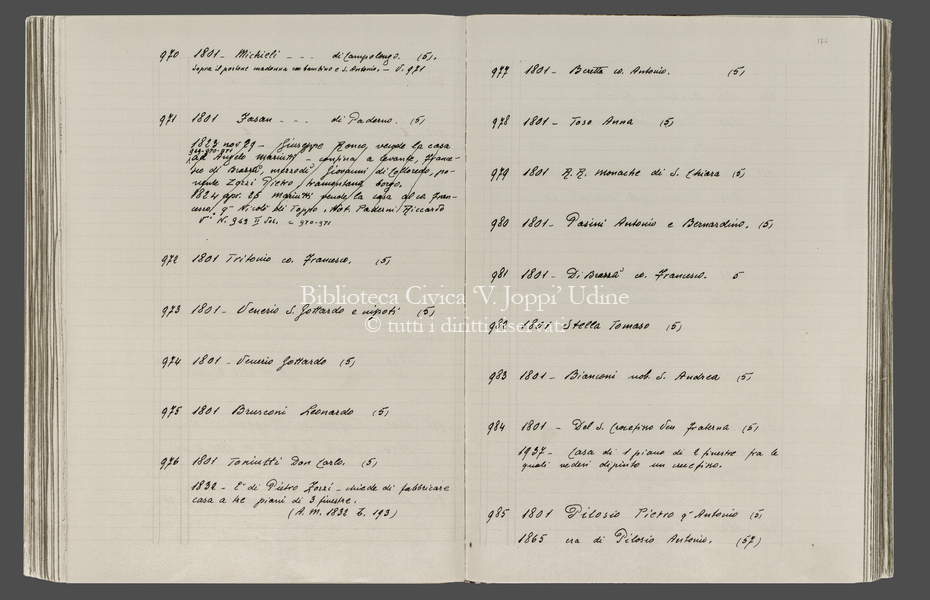 970 1801 - Michieli - - - di Campolongo. (5).
sopra il portone madonna con bambino e S. Antonio. - V. 971
971 1801 Fasan - - - di Paderno. (5)
1823 nov 29 - Giuseppe Ronco, vende la casa
969-970-971
ad Angelo Mariutti - confina a levante, France-
sco di Brazzà, mezzodì Giovanni di Colloredo, po-
nente Zorzi Pietro tramontana borgo.
1824 apr. 28 Mariutti vende la casa al co. Fran-
cesco, q.m Nicolò di Toppo, Not. Paderni Riccardo
V. N. 969 II 970-971
972 1801 Tritonio co. Francesco. (5)
973 1801 - Venerio S. Gottardo e nipoti (5)
974 1801 - Venerio Gottardo (5)
975 1801 Brusconi Leonardo (5)
976 1801 Toniutti Don Carlo. (5)
1832 - E' di Pietro Zorzi - chiede di fabbricare
casa a tre piani di 3 finestre.
(A. M. 1832 E. 193)
977 1801 - Beretta co. Antonio. (5)
978 1801 - Toso Anna (5)
979 1801 R.R. monache di S. Chiara (5)
980 1801 - Pasini Antonio e Bernardino. (5)
981 1801 - Di Brazzà co. Francesco. 5
982 1801 Stella Tomaso (5)
983 1801 - Bianconi nob. S. Andrea (5)
984 1801 - Del S. Crocefisso Ven Fraterna (5)
1937 - Casa di 1 piano di 2 finestre fra le
quali vedesi dipinto un crocefisso.
985 1801 Pilosio Pietro q.m Antonio (5)
1865 era di Pilosio Antonio. (57)
Biblioteca Civica 'V. Joppi' Udine
© tutti i diritti riservati